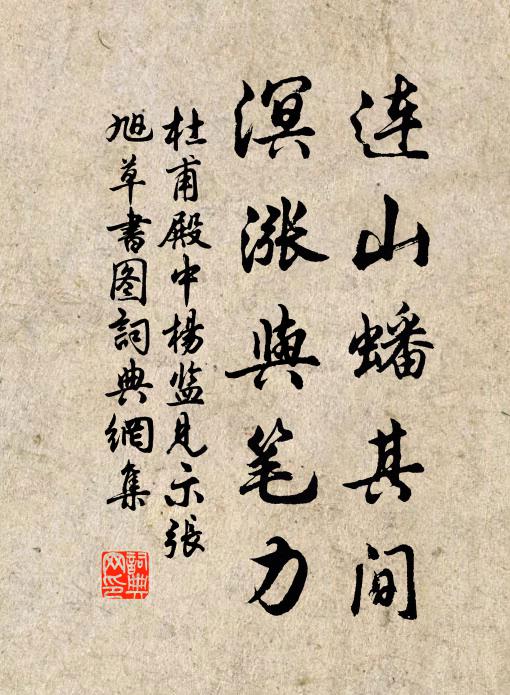 连山蟠其间
溟涨與笔力
杜甫殿中楊监見示張
旭草書图詞典網集
詞典
网印